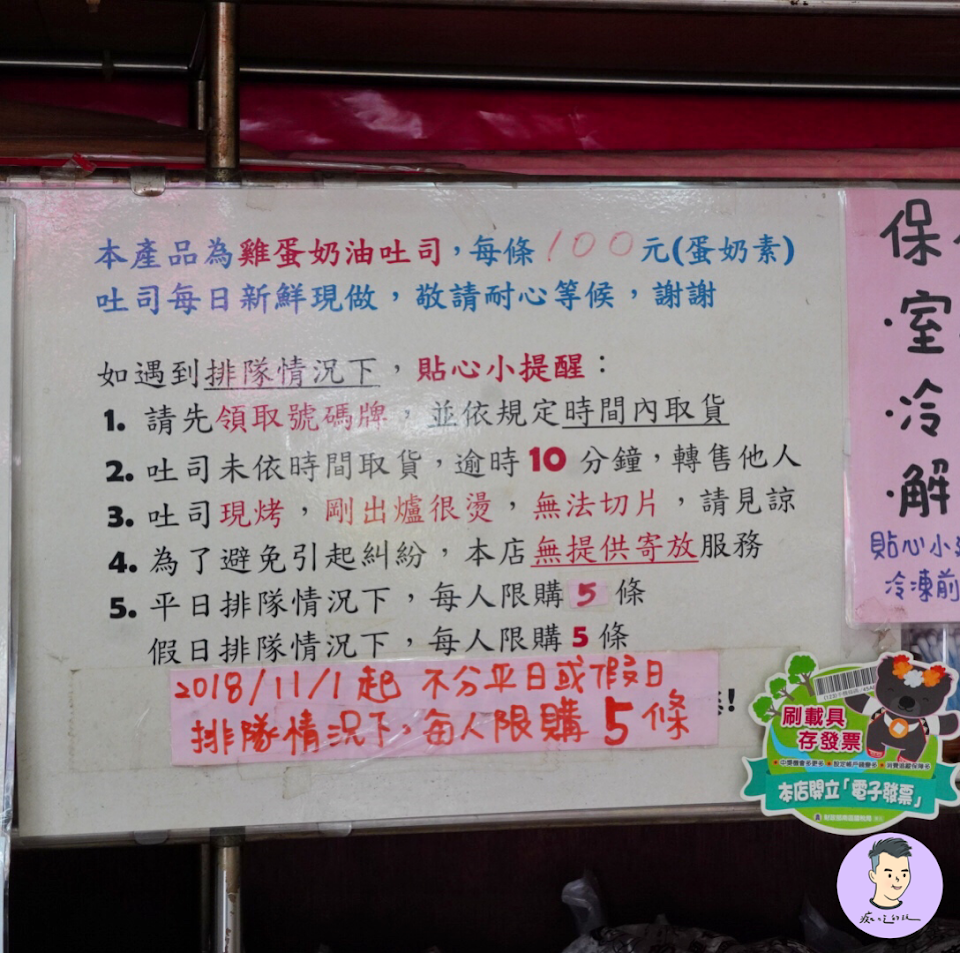 本產品為雞蛋奶油吐司，每條100元(蛋奶素)
吐司每日新鮮現做，敬請耐心等候，謝謝
如遇到排隊情況下，貼心小提醒：
1. 請先領取號碼牌，並依規定時間內取貨
2. 吐司未依時間取貨，逾時10分鐘，轉售他人
3. 吐司現烤，剛出爐很燙，無法切片，請見諒
4. 為了避免引起糾紛，本店無提供寄放服務
5. 平日排隊情況下，每人限購5條
假日排隊情況下，每人限購5條
2018/11/1起 不分平日或假日
排隊情況下，每人限購5條
!
保
·室
·冷
·解
貼心小
冷凍前
刷載具
存發票
本店開立「電子發票」